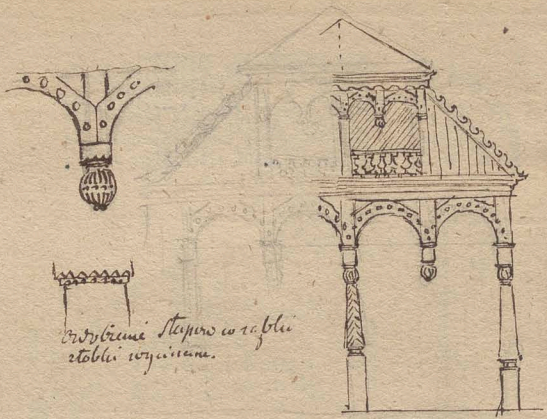 ozdobienie słupów w ząbki
żłobki wycinane.